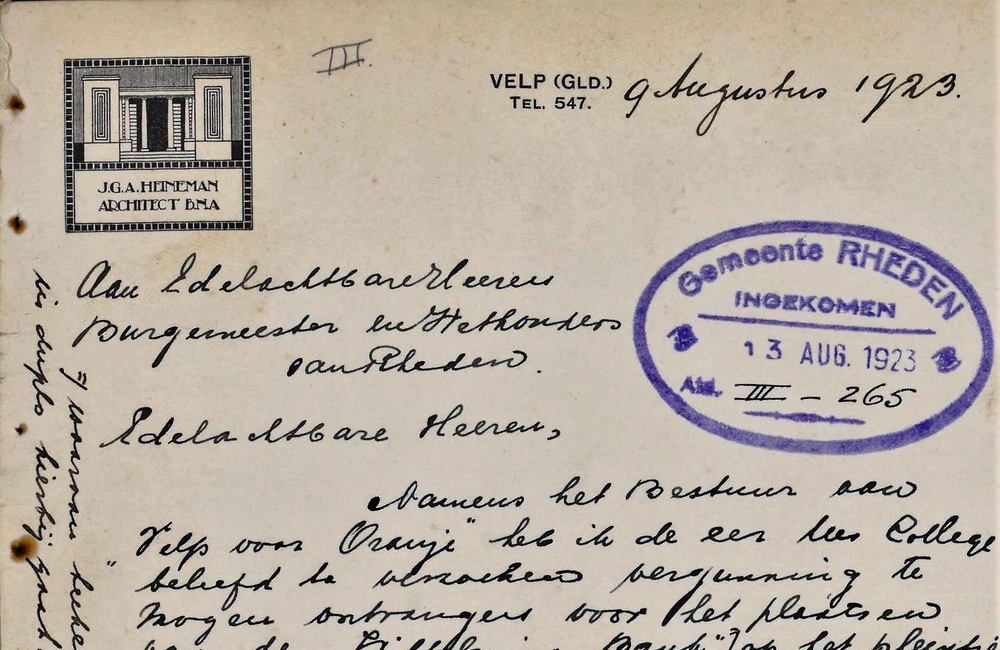 III.
VELP (GLD.)
TEL. 547.
9 Augustus 1923.
J.G.A. HEINEMAN
ARCHITECT B.N.A
Gemeente RHEDEN
INGEKOMEN
13 AUG. 1923
Afd. III - 265
Aan Edelachtbare Heeren
Burgemeester en Wethouders
van Rheden.
Edelachtbare Heeren,
Namens het Bestuur van
"Velp voor Oranje" heb ik de eer Uw College
beleefd te verzoeken vergunning te
mogen ontvangen voor het plaatsen
van de Bank" op het pleintje
waarvan
in duplo hierbij gaat